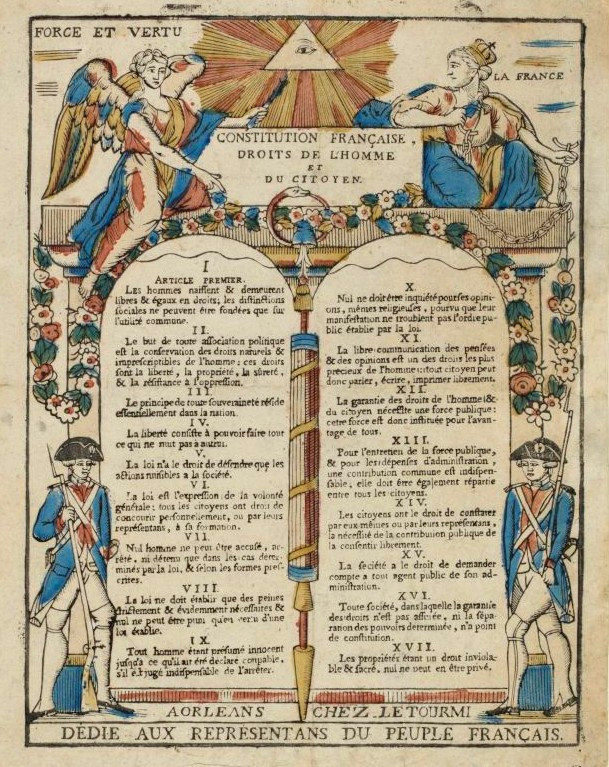 FORCE ET VERTU
LA FRANCE
CONSTITUTION FRANÇAISE,
DROITS DE L'HOMME
ET
DU CITOYEN.
I
ARTICLE PREMIER.
Les hommes naissent & demeurent
libres & égaux en droits; les distinctions
sociales ne peuvent être fondées que sur
l'utilité commune.
II.
Le but de toute association politique
est la conservation des droits naturels &
imprescriptibles de l'homme; ces droits
sont la liberté, la propriété, la sûreté,
& la résistance à l'oppression.
III.
Le principe de toute souveraineté réside
essentiellement dans la nation.
IV.
La liberté consiste à pouvoir faire tout
ce qui ne nuit pas à autrui.
V.
La loi n'a le droit de défendre que les
actions nuisibles à la société.
VI.
La loi est l'expression de la volonté
générale; tous les citoyens ont droit de
concourir personnellement, ou par leurs
représentans, à sa formation.
VII.
Nul homme ne peut être accusé, arrêté, ni détenu que dans les cas déterminés par la loi, & selon les formes prescrites.
VIII.
La loi ne doit établir que des peines
strictement & évidemment nécessaires &
nul ne peut être puni qu'en vertu d'une
loi établie.
IX.
Tout homme étant présumé innocent
jusqu'à ce qu'il ait été déclaré coupable,
s'il est jugé indispensable de l'arrêter.
X.
Nul ne doit être inquiété pour ses opini-
ons, mêmes religieuses, pourvu que leur
manifestation ne troublent pas l'ordre pu-
blic établie par la loi.
XI.
La libre communication des pensées
& des opinions est un des droits les plus
précieux de l'homme: tout citoyen peut
donc parler, écrire, imprimer librement.
XII.
La garantie des droits de l'homme &
du citoyen nécessite une force publique:
cette force est donc instituée pour l'avan-
tage de tous.
XIII.
Pour l'entretien de la force publique,
& pour les dépenses d'administration,
une contribution commune est indispen-
sable; elle doit être également répartie
entre tous les citoyens.
XIV.
Les citoyens ont le droit de constater
par eux-mêmes ou par leurs représentans,
la nécessité de la contribution publique de
la consentir librement.
XV.
La société a le droit de demander
compte à tout agent public de son ad-
ministration.
XVI.
Toute société, dans laquelle la garantie
des droits n'est pas assurée, ni la sépa-
ration des pouvoirs déterminée, n'a point
de constitution.
XVII.
Les propriétés étant un droit inviola-
ble & sacré, nul ne peut en être privé.
A ORLEANS CHEZ LETOURMI
DÉDIÉ AUX REPRÉSENTANS DU PEUPLE FRANÇAIS.